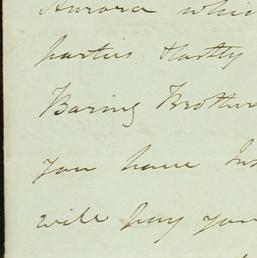 Aurora which
parties Hartly
Baring Brothers
you have
will pay you